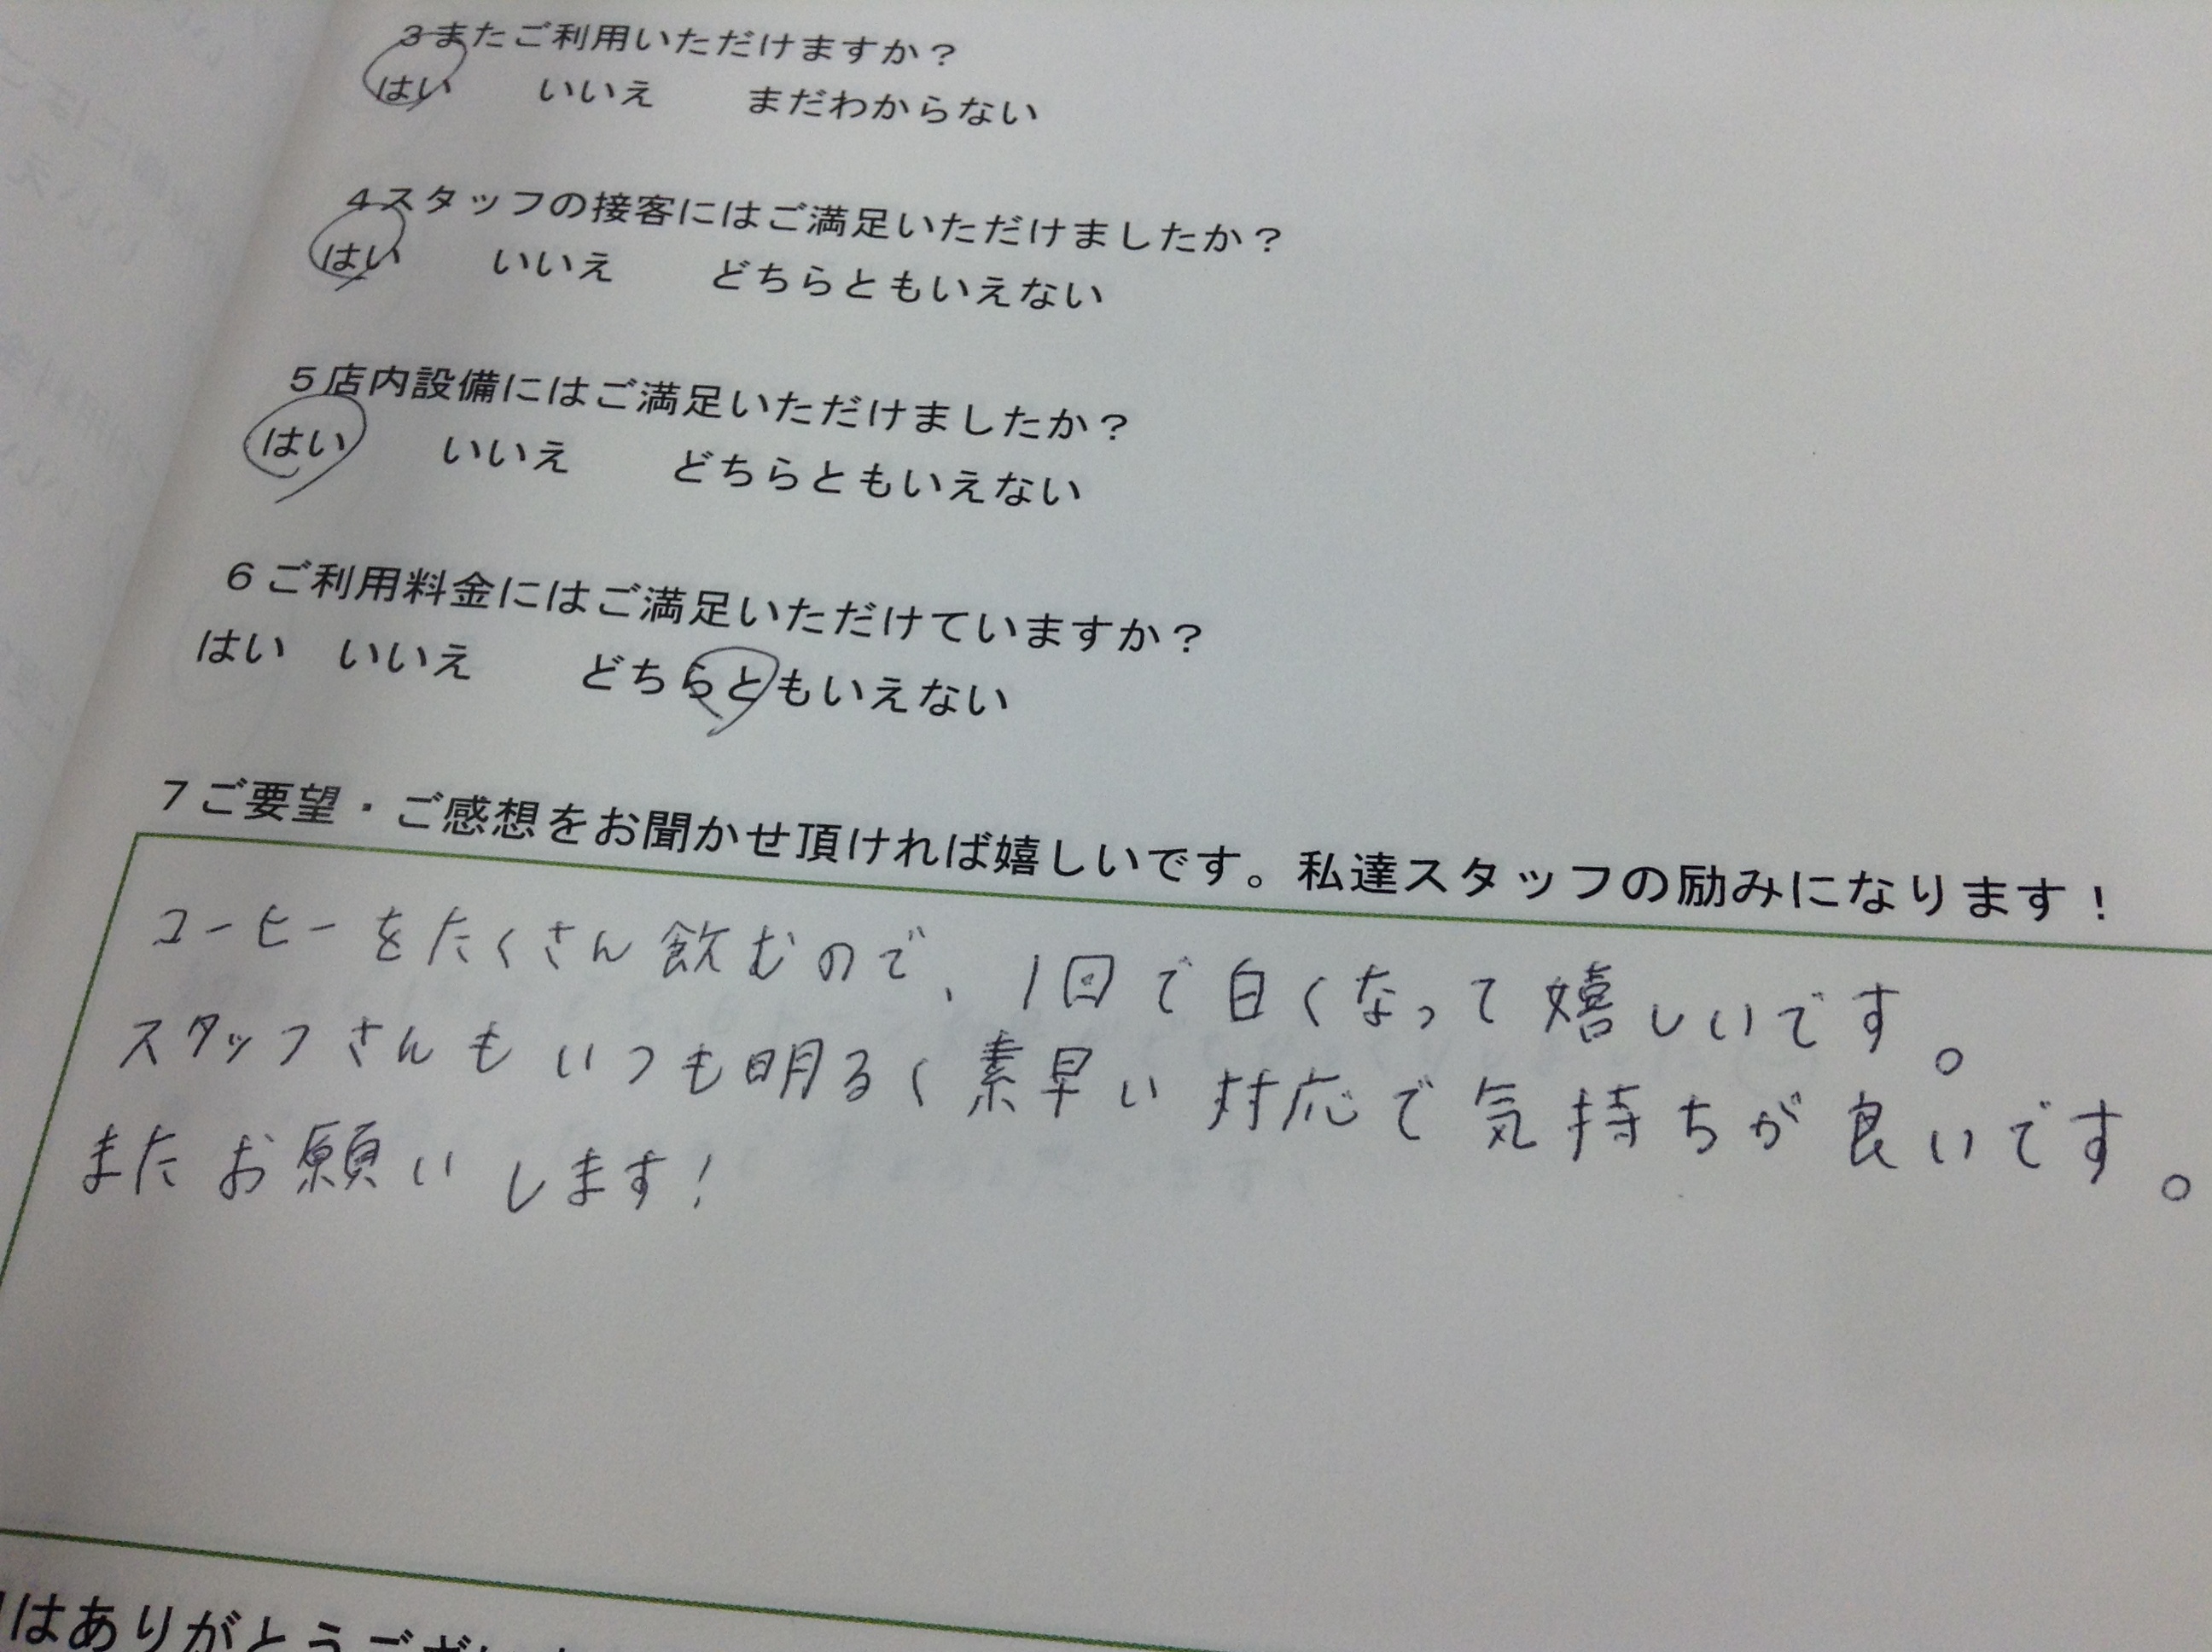 3またご利用いただけますか？
はい　いいえ　まだわからない
4スタッフの接客にはご満足いただけましたか？
はい　いいえ　どちらともいえない
5店内設備にはご満足いただけましたか？
はい　いいえ　どちらともいえない
6ご利用料金にはご満足いただけていますか？
はい　いいえ　どちらともいえない
7ご要望・ご感想をお聞かせ頂ければ嬉しいです。私達スタッフの励みになります！
コーヒーをたくさん飲むので、1回で白くなって嬉しいです。
スタッフさんもいつも明るく素早い対応で気持ちが良いです。
またお願いします！
はありがとうござい